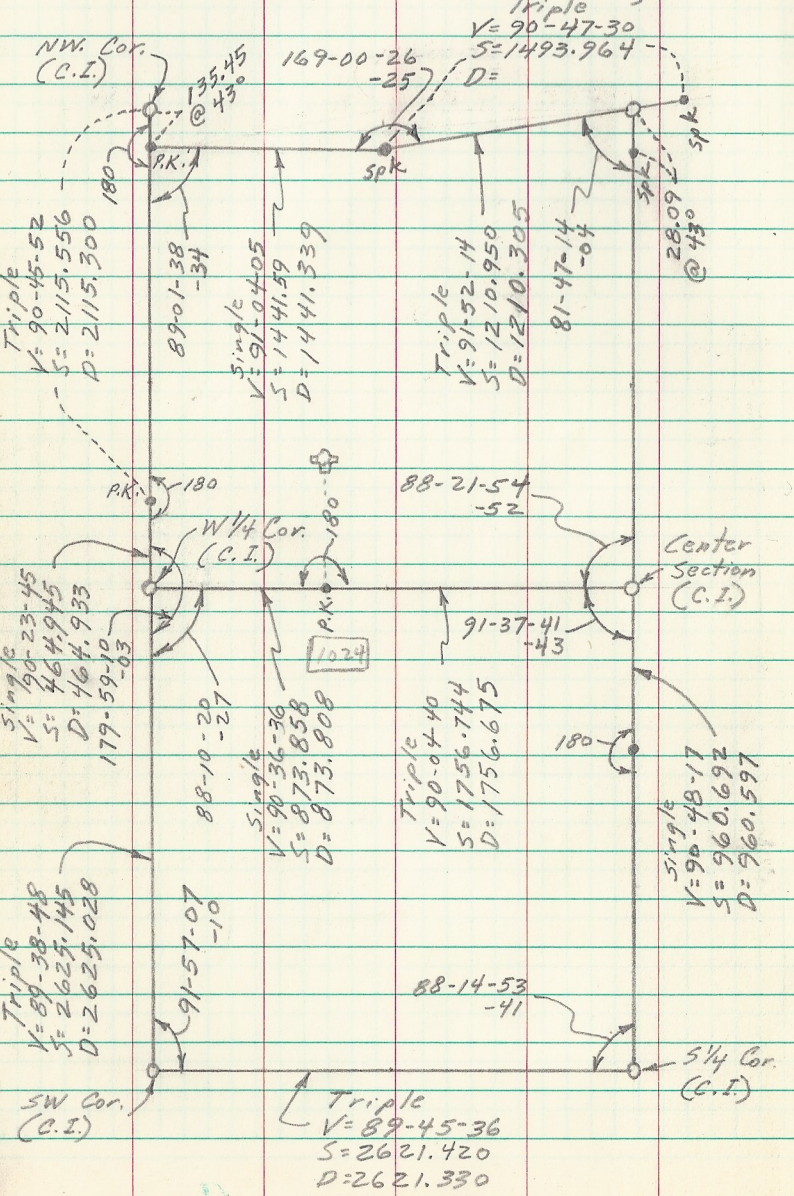 Triple
V= 90-47-30
S=1493.964
D=
NW. Cor.
(C.I.)
135.45
@ 43°
169-00-26
-25
180
P.K.
spk
spk
spk
28.09
@ 43°
Triple
V= 90-45-52
S= 2115.556
D= 2115.300
89-01-38
-34
Single
V= 91-04-05
S= 1441.59
D= 1441.339
Triple
V= 91-52-14
S= 1210.950
D= 1210.305
81-47-14
-04
P.K.
180
W 1/4 Cor.
(C.I.)
180
P.K.
1024
88-21-54
-52
Center
Section
(C.I.)
91-37-41
-43
Single
V= 90-23-45
S= 464.945
D= 464.933
179-59-10
-03
88-10-20
-27
Single
V= 90-36-36
S= 873.858
D= 873.808
Triple
V= 90-04-40
S= 1756.744
D= 1756.675
180
Single
V= 90-48-17
S= 960.692
D= 960.597
Triple
V= 89-38-48
S= 2625.145
D= 2625.028
91-57-07
-10
88-14-53
-41
S 1/4 Cor.
(C.I.)
SW Cor.
(C.I.)
Triple
V= 89-45-36
S= 2621.420
D= 2621.330